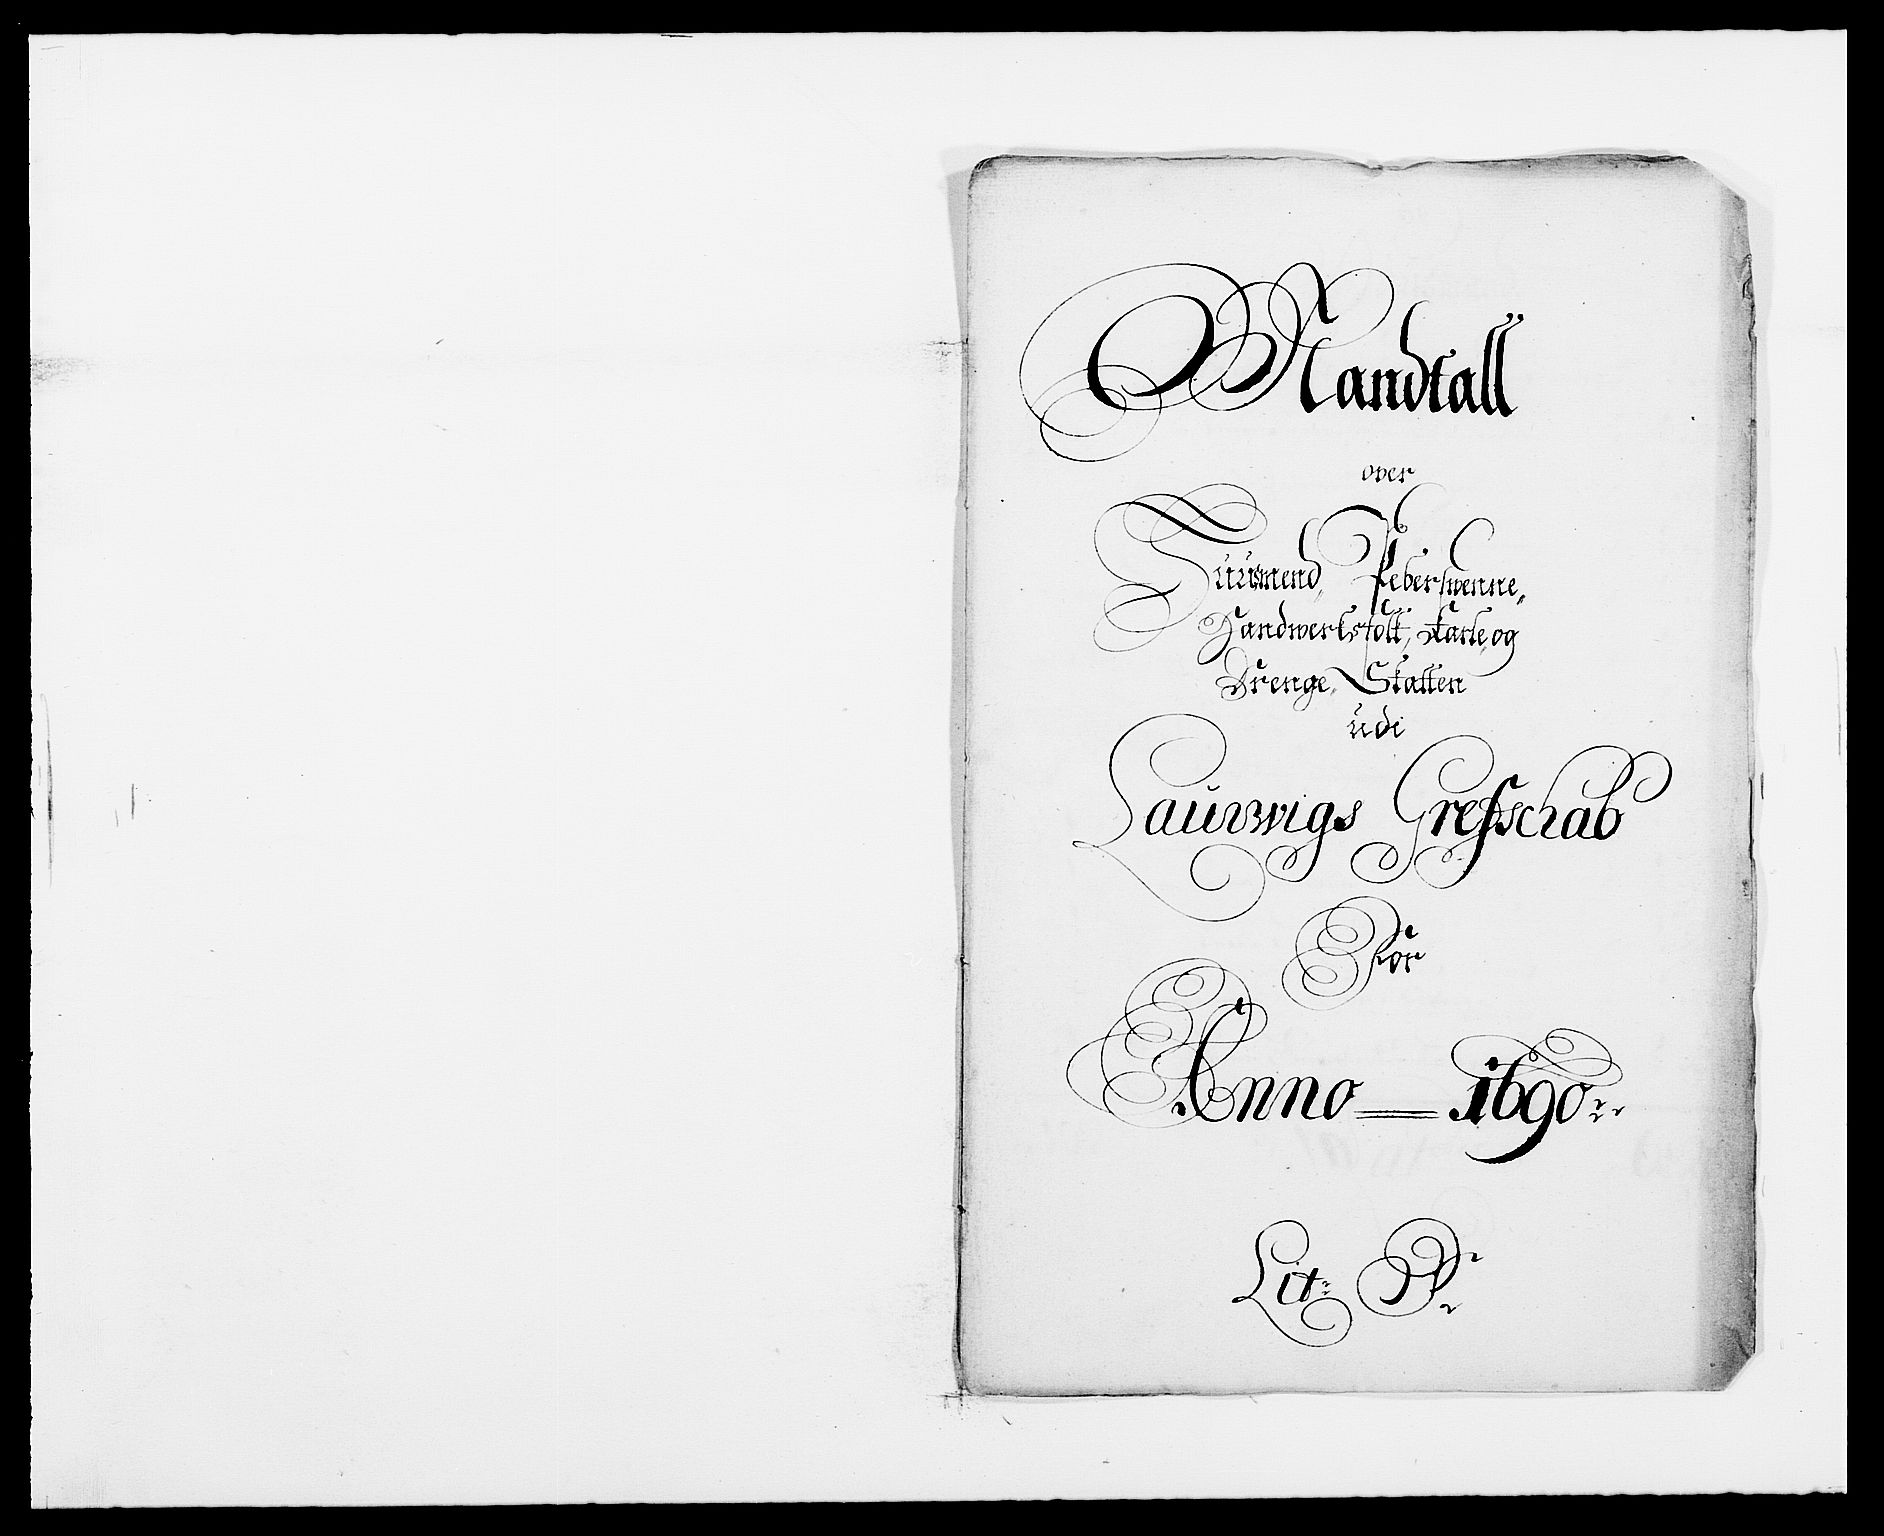 Mandtall
over
Huusmend, Peberswenne,
Handwerksfolk, Karle, og
Drenge, Skatten
udi
Laurwigs Grefschab
For
Anno 1690
Lit: P.